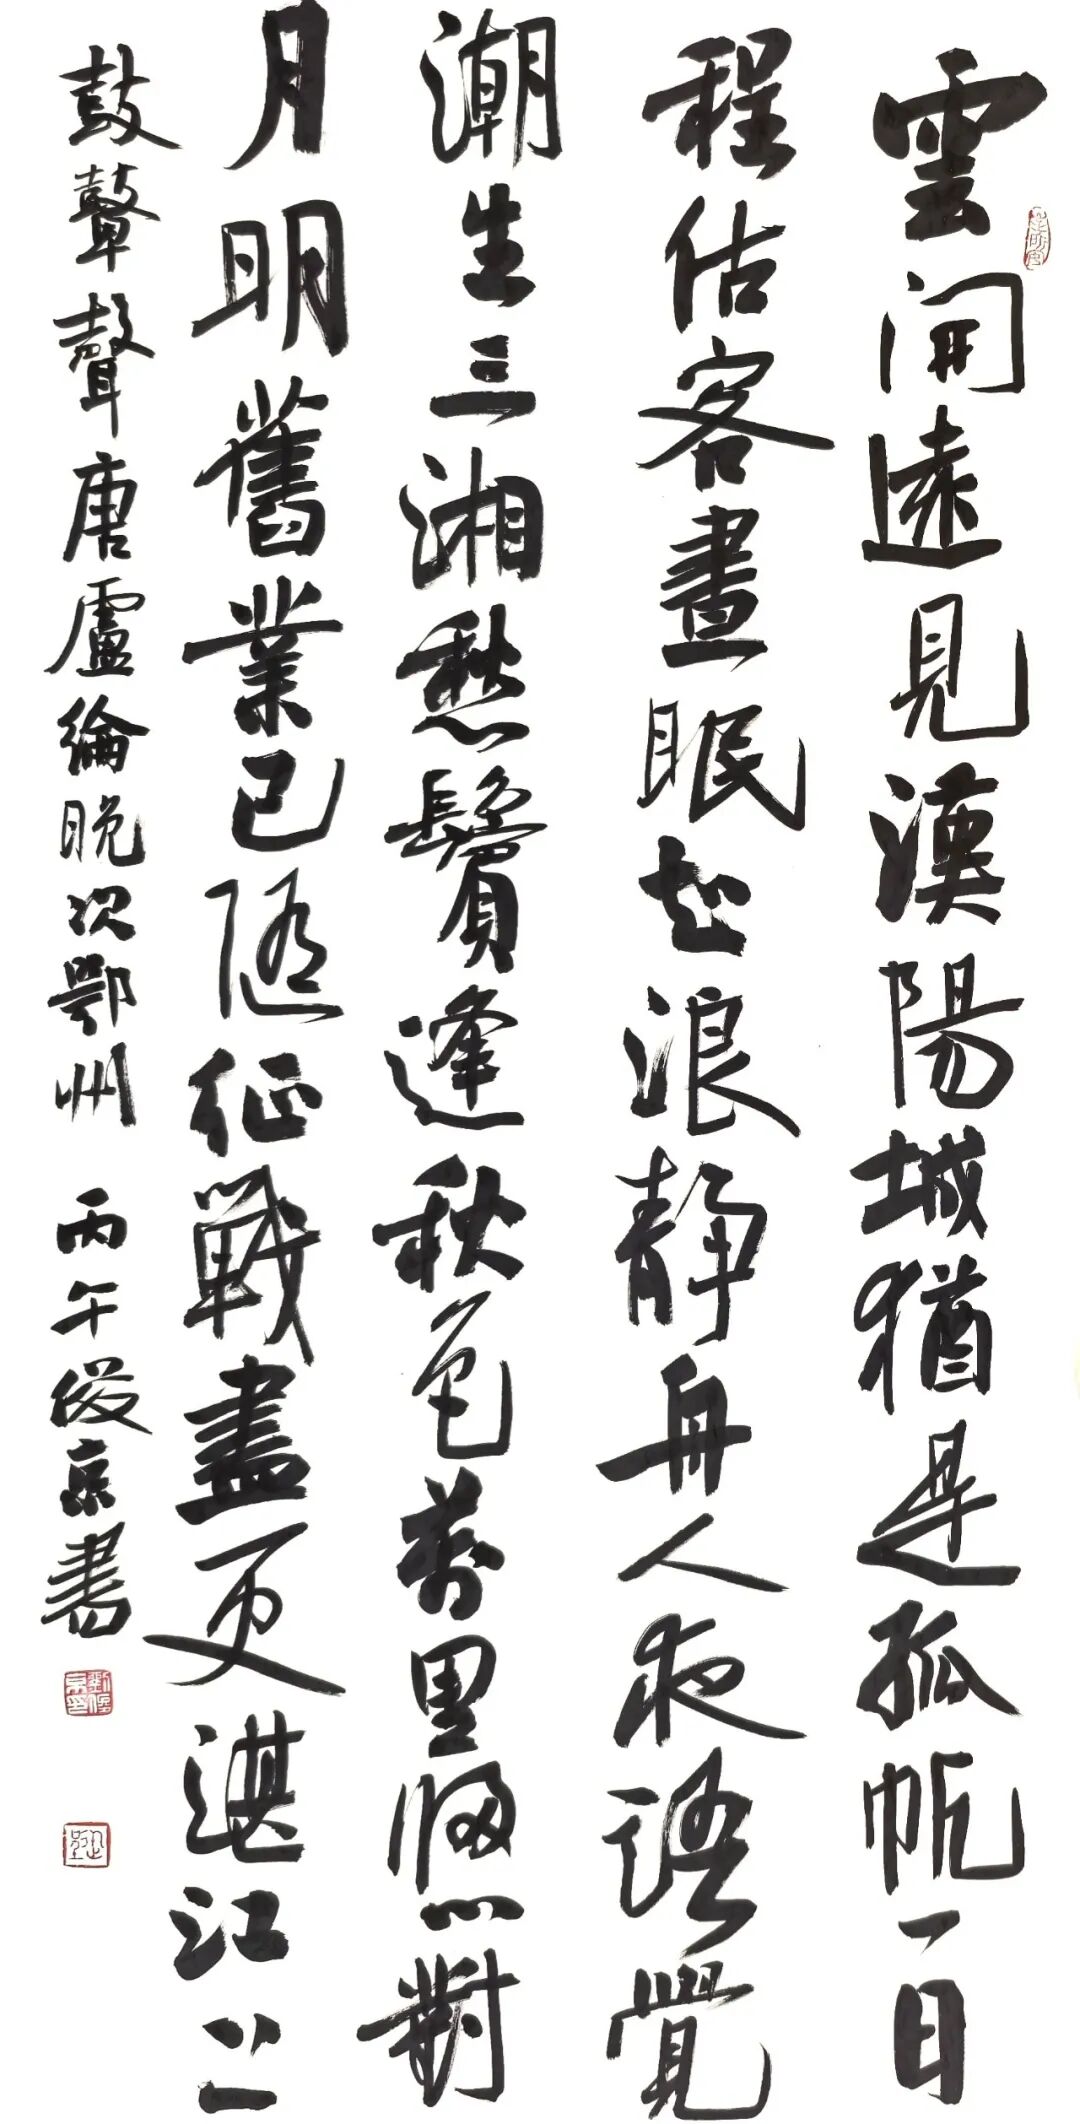 雲開遠見漢陽城猶是孤帆一日
程估客晝眠知浪靜舟人夜語覺
潮生三湘愁鬢逢秋色萬里歸心對
月明舊業已隨征戰盡更湛江上
鼓鼙聲唐盧綸晚次鄂州 丙午俊京書
劉俊京印